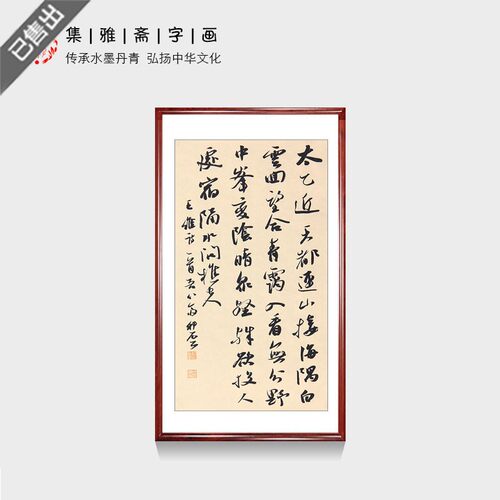 已售出
集|雅|斋|字|画
传承水墨丹青 弘扬中华文化
太乙近天都連山接海隅白
雲回望合青靄入看無分野
中峯變陰晴眾壑殊欲投人
處宿隔水問樵夫
王維詩一首